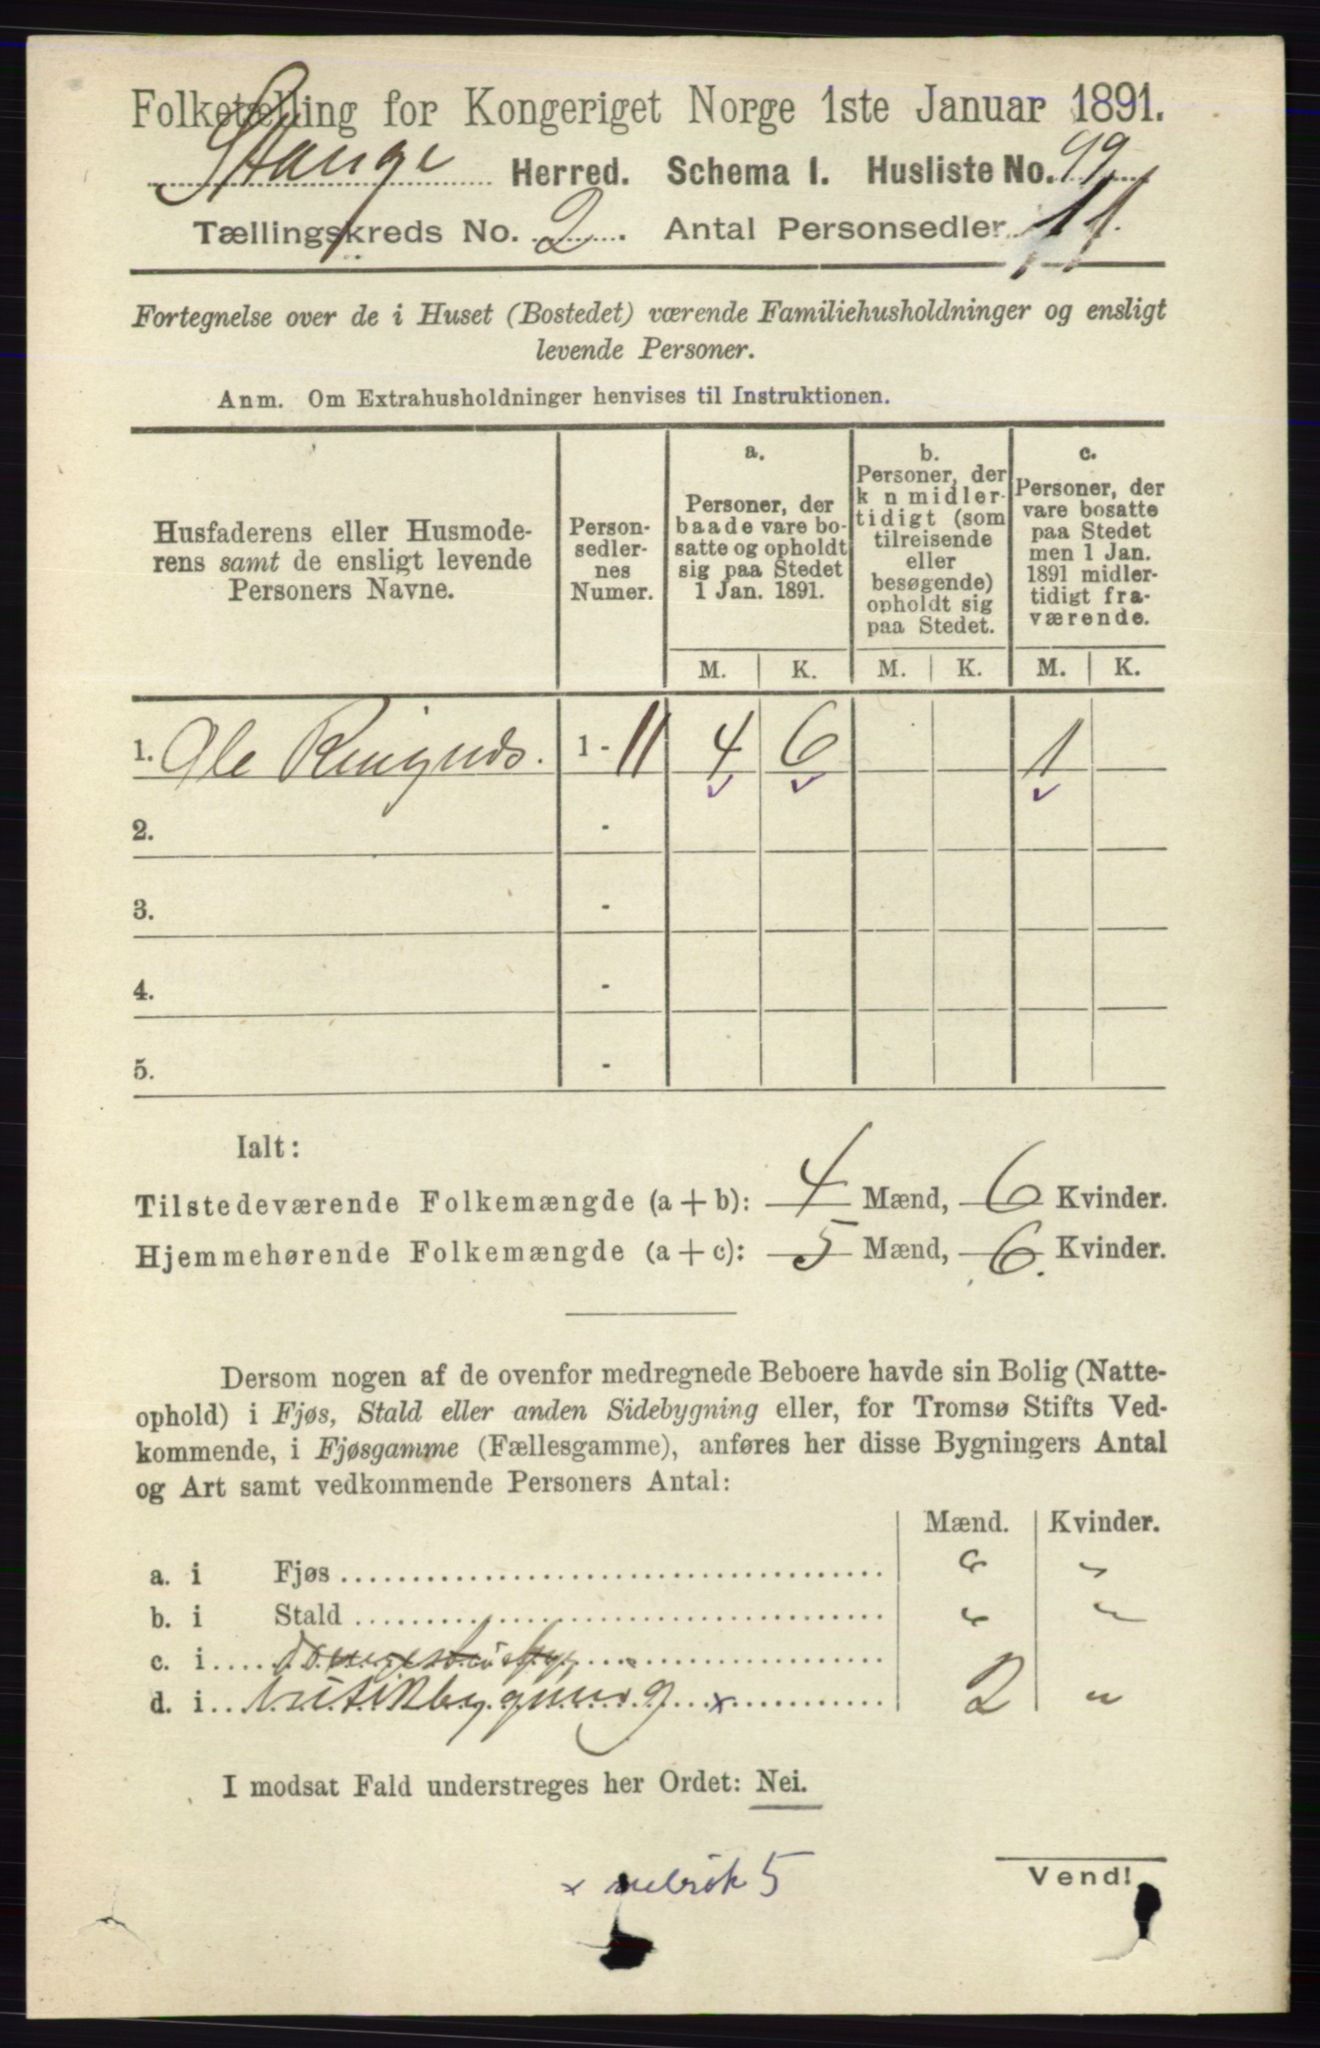 Folketælling for Kongeriget Norge 1ste Januar 1891.
Stange Herred. Schema I. Husliste No. 99
Tællingskreds No. 2. Antal Personsedler 11.
Fortegnelse over de i Huset (Bostedet) værende Familiehusholdninger og ensligt
levende Personer.
Anm. Om Extrahusholdninger henvises til Instruktionen.
Husfaderens eller Husmode-
rens samt de ensligt levende
Personers Navne.
Person-
sedler-
nes
Numer.
a.
Personer, der
baade vare bo-
satte og opholdt
sig paa Stedet
1 Jan. 1891.
b.
Personer, der
k n midler-
tidigt (som
tilreisende
eller
besøgende)
opholdt sig
paa Stedet.
c.
Personer, der
vare bosatte
paa Stedet
men 1 Jan.
1891 midler-
tidigt fra-
værende.
M. K. M. K. M. K.
1. Ole Ringnæs. 1 - 11 4 6 1
2. -
3. -
4. -
5. -
Ialt:
Tilstedeværende Folkemængde (a + b): 4 Mænd, 6 Kvinder.
Hjemmehørende Folkemængde (a + c): 5 Mænd, 6. Kvinder.
Dersom nogen af de ovenfor medregnede Beboere havde sin Bolig (Natte-
ophold) i Fjøs, Stald eller anden Sidebygning eller, for Tromsø Stifts Ved-
kommende, i Fjøsgamme (Fællesgamme), anføres her disse Bygningers Antal
og Art samt vedkommende Personers Antal:
Mænd. Kvinder.
a. i Fjøs " "
b. i Stald " "
c. i
d. i butikbygning x 2 "
I modsat Fald understreges her Ordet: Nei.
Vend!
x 5